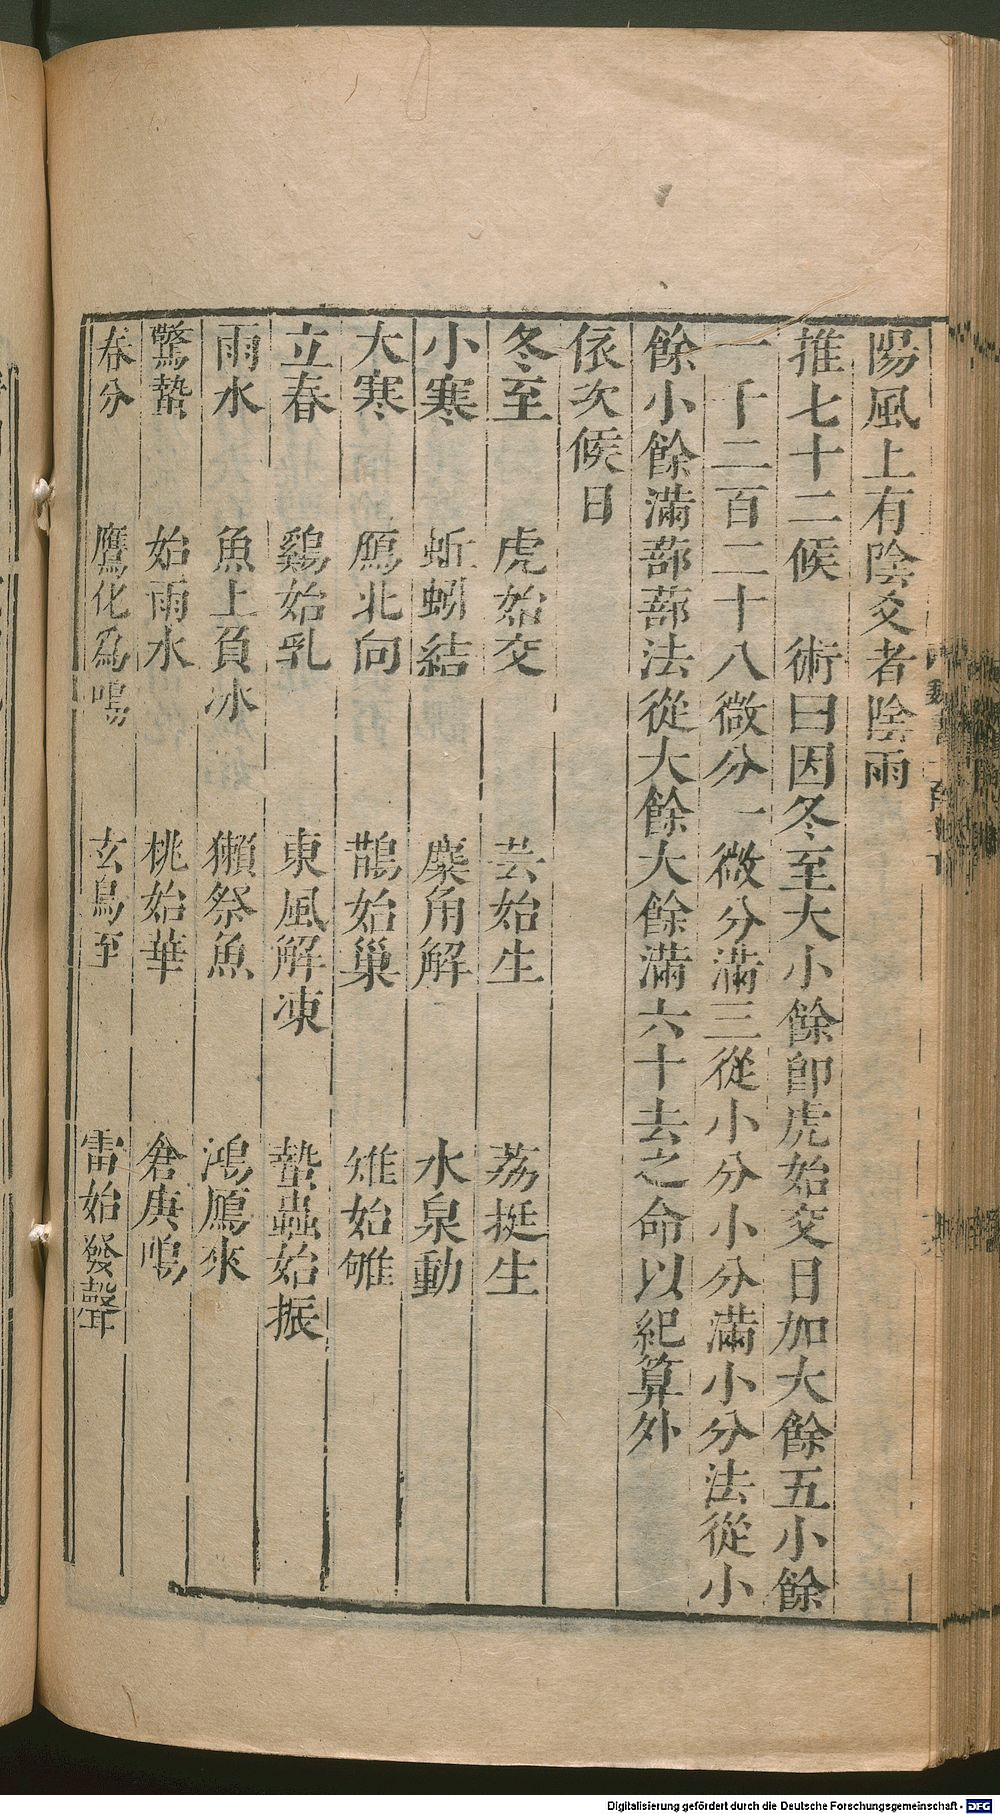 陽風上有陰爻者陰雨
推七十二候　術曰因冬至大小餘即虎始交日加大餘五小餘
一千二百二十八微分一微分滿三從小分小分滿小分法從小
餘小餘滿蔀蔀法從大餘大餘滿六十去之命以紀算外
依次候日
冬至　虎始交　芸始生　荔挺生
小寒　蚯蚓結　麋角解　水泉動
大寒　鴈北向　鵲始巢　雉始雊
立春　鷄始乳　東風解凍　蟄蟲始振
雨水　魚上負冰　獺祭魚　鴻鴈來
驚蟄　始雨水　桃始華　倉庚鳴
春分　鷹化爲鳩　玄鳥至　雷始發聲
Digitalisierung gefördert durch die Deutsche Forschungsgemeinschaft - DFG